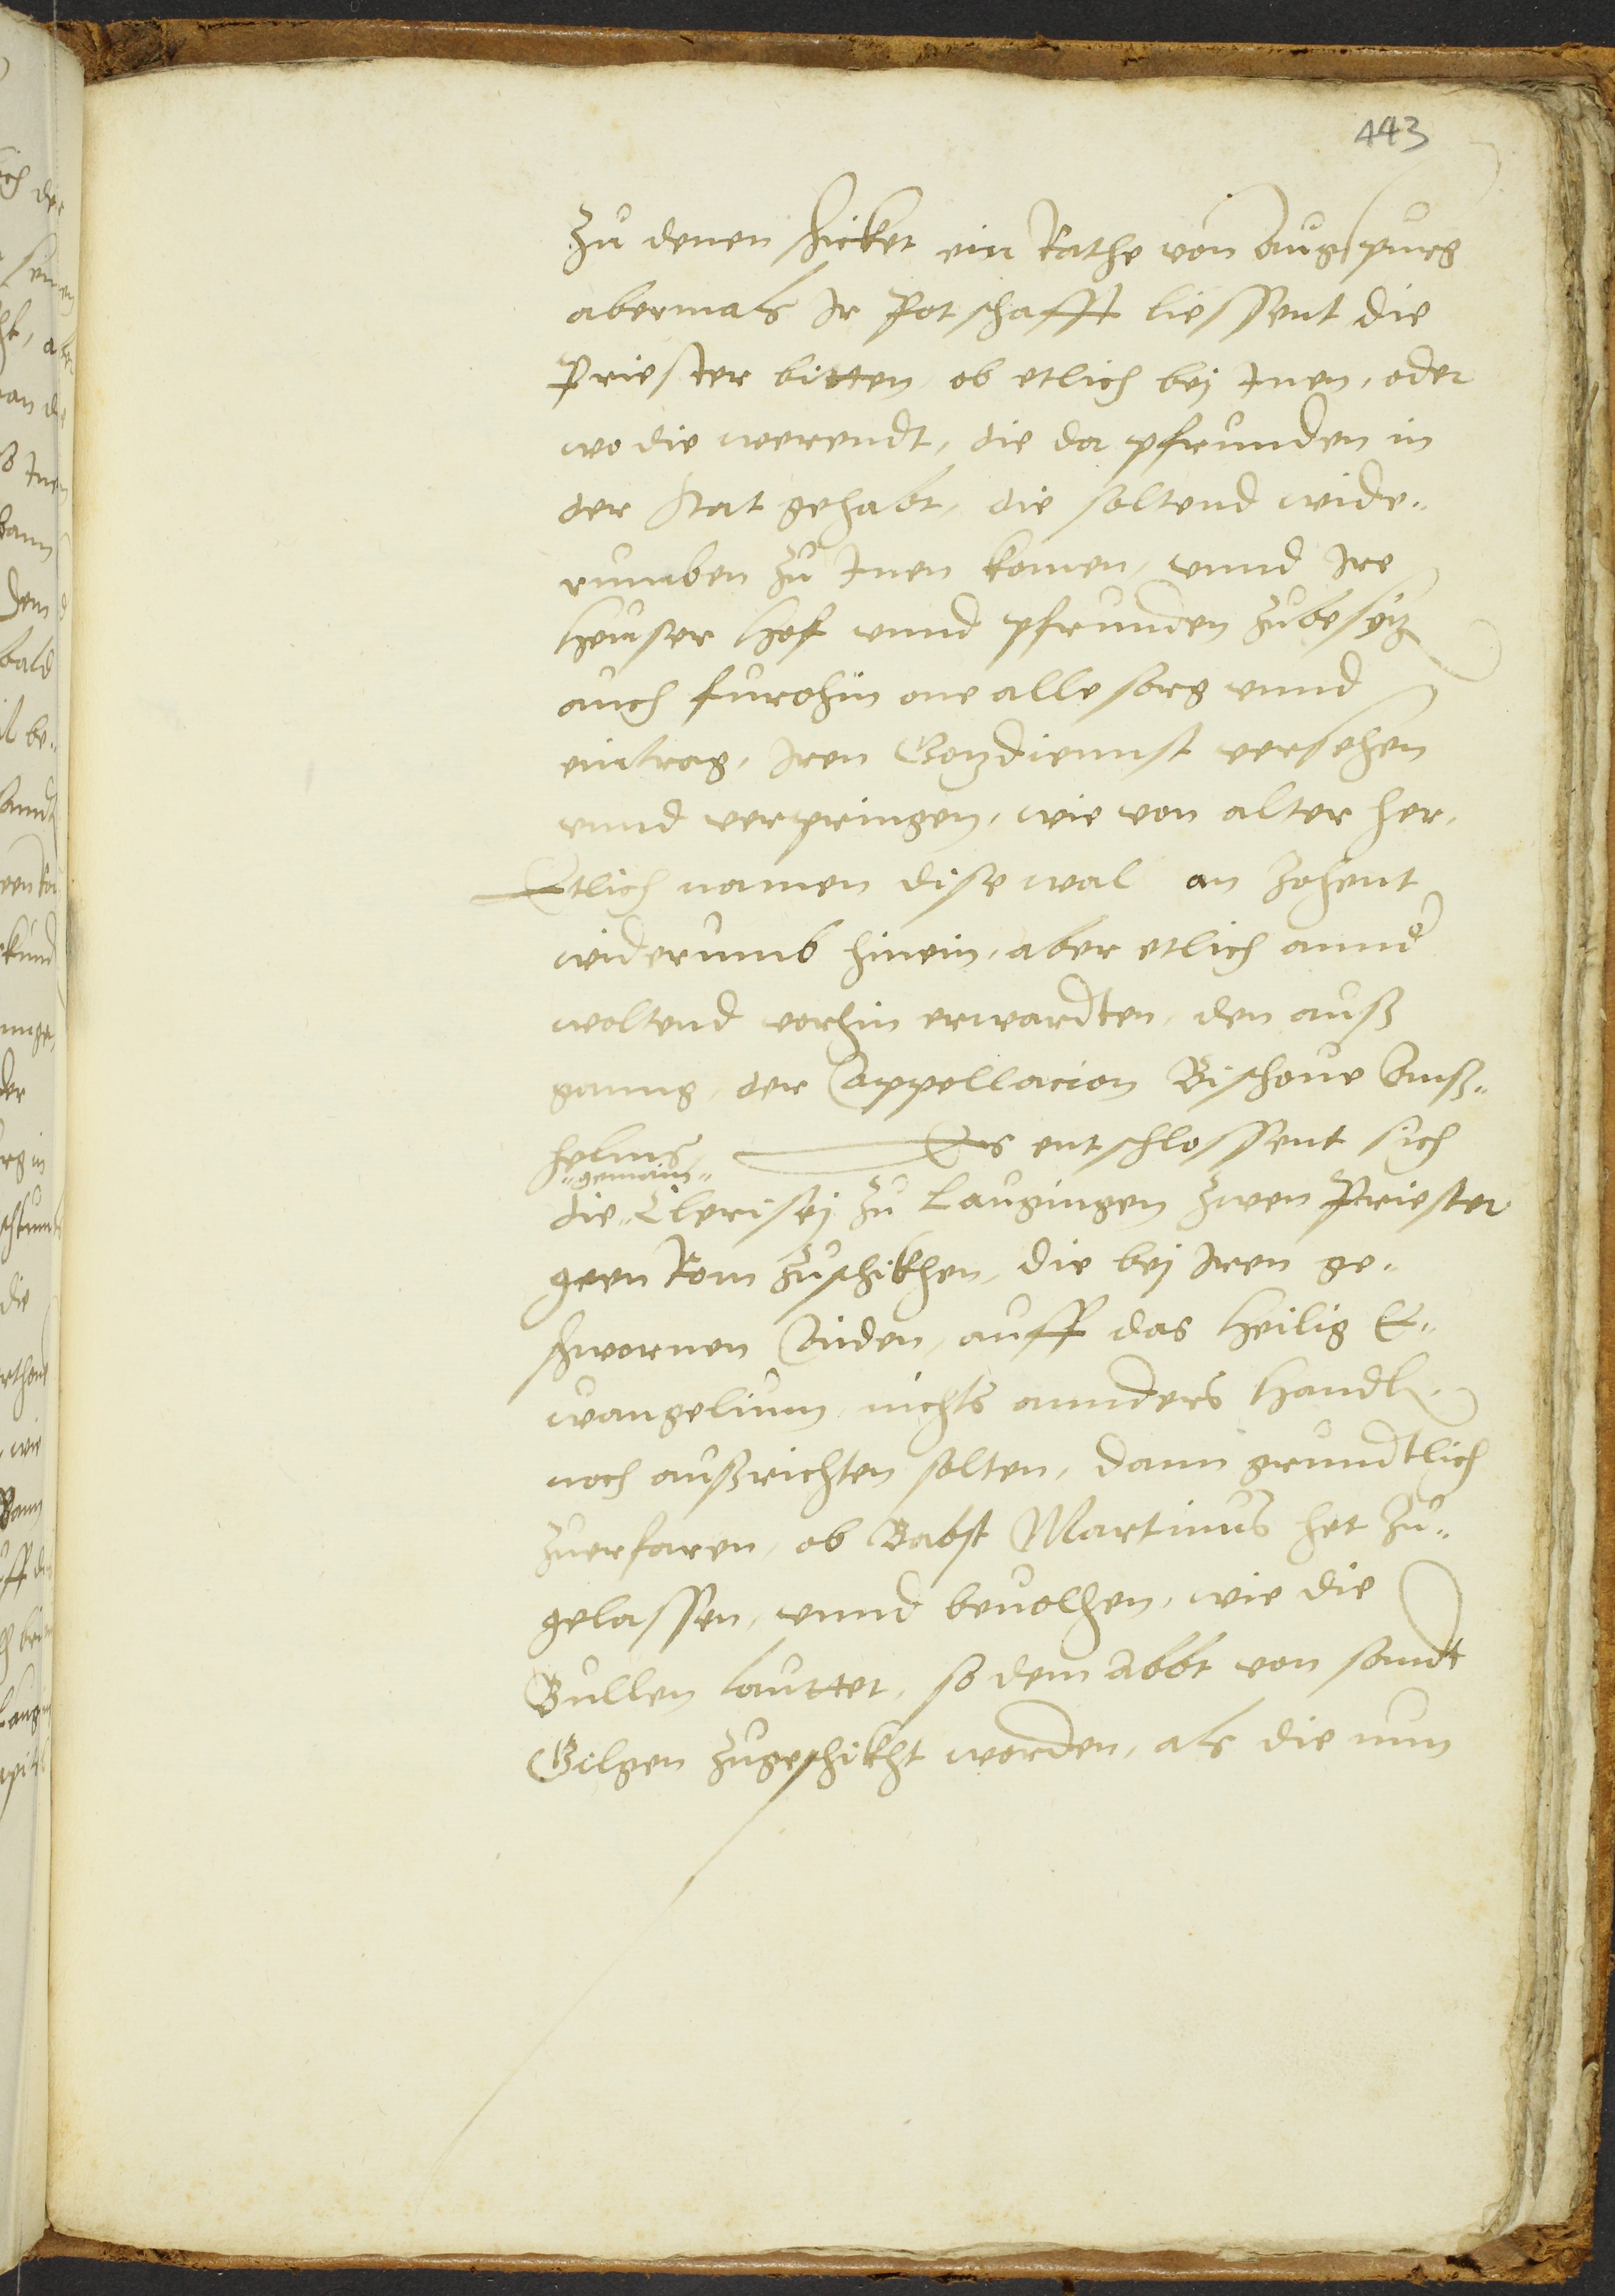 443
Zu denen schicket ein Rathe von Augspurg
abermals Ir Potschafft liessent die
Priester bitten, ob etlich bej Inen, oder
wo die werendt, die da pfrunden in
der Stat gehabt, die soltend wide„
rumben zu Inen komen, unnd Ire
heuser hof unnd pfrunden zubesytz
auch furohin one alle sorg unnd
eintrag, Iren Gotzdiennst versehen
unnd verpringen, wie von alter her,
Etlich namen dise wal an zohent
widerumb hinein, aber etlich annd
woltend vorhin erwardten, den auß
ganng, der Appellacion Bischove Annß„
helms, Es entschlossent sich
„gemain„
die„ Clerisej zu Laugingen zwen Priester
geen Rom zuschikhen, die bej Iren ge„
schwornen Aiden, auff das heilig E„
wangelium nichts annders handl
noch außrichten solten, dann grundtlich
zuerfaren, ob Babst Martinus het zu„
gelassen, unnd bevolhen, wie die
Bullen lauttet, so dem Abbt von sandt
Gilgen zugeschikht worden, als die nun